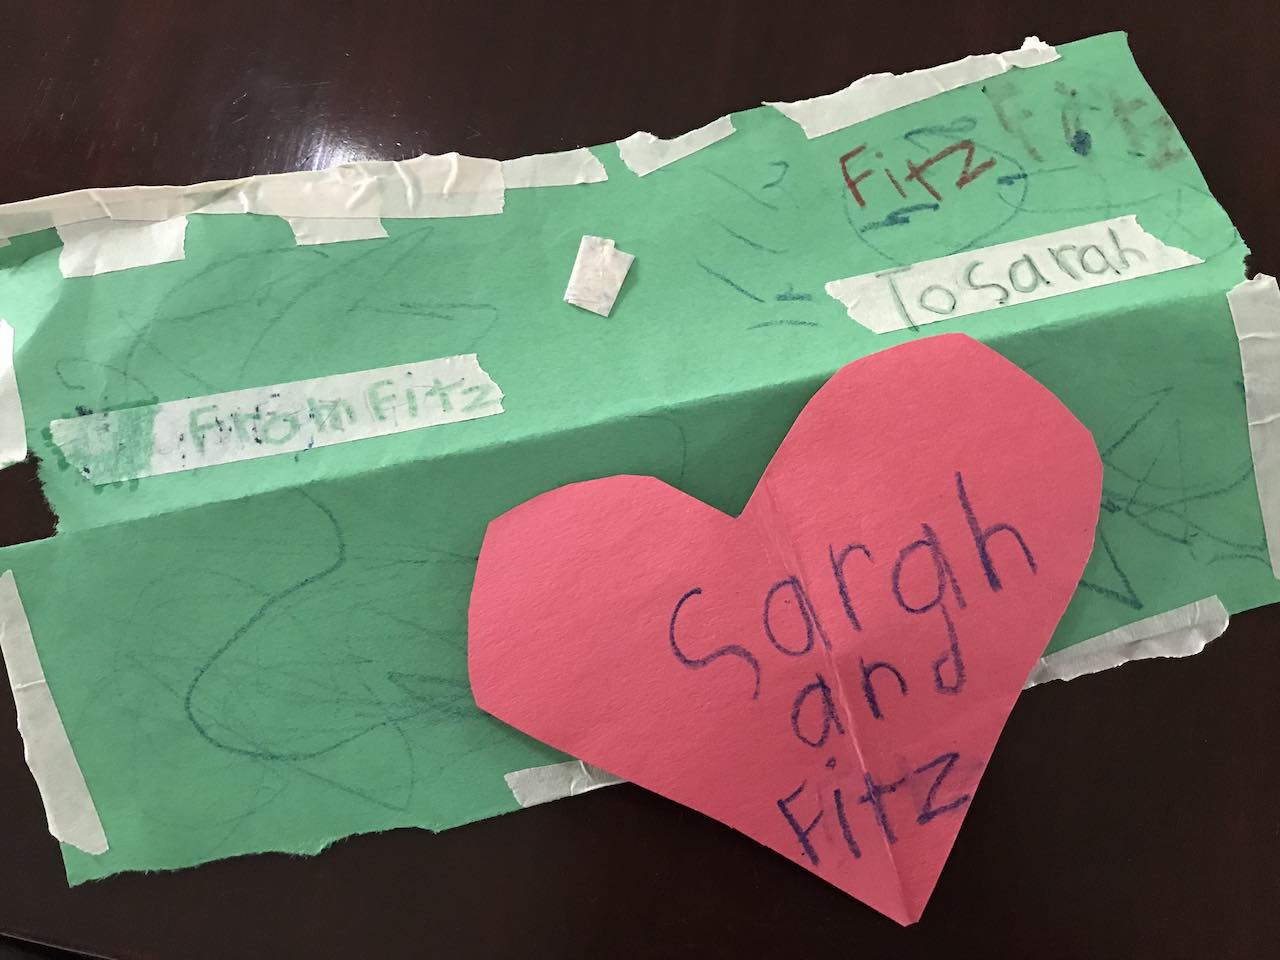 Fitz
Fitz
To Sarah
From Fitz
Sarah
and
Fitz